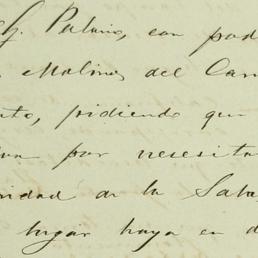 G. Palma, con pod
Molino del Car
to, pidiendo que
por necesita
ridad de la Saba
lugar haya en d